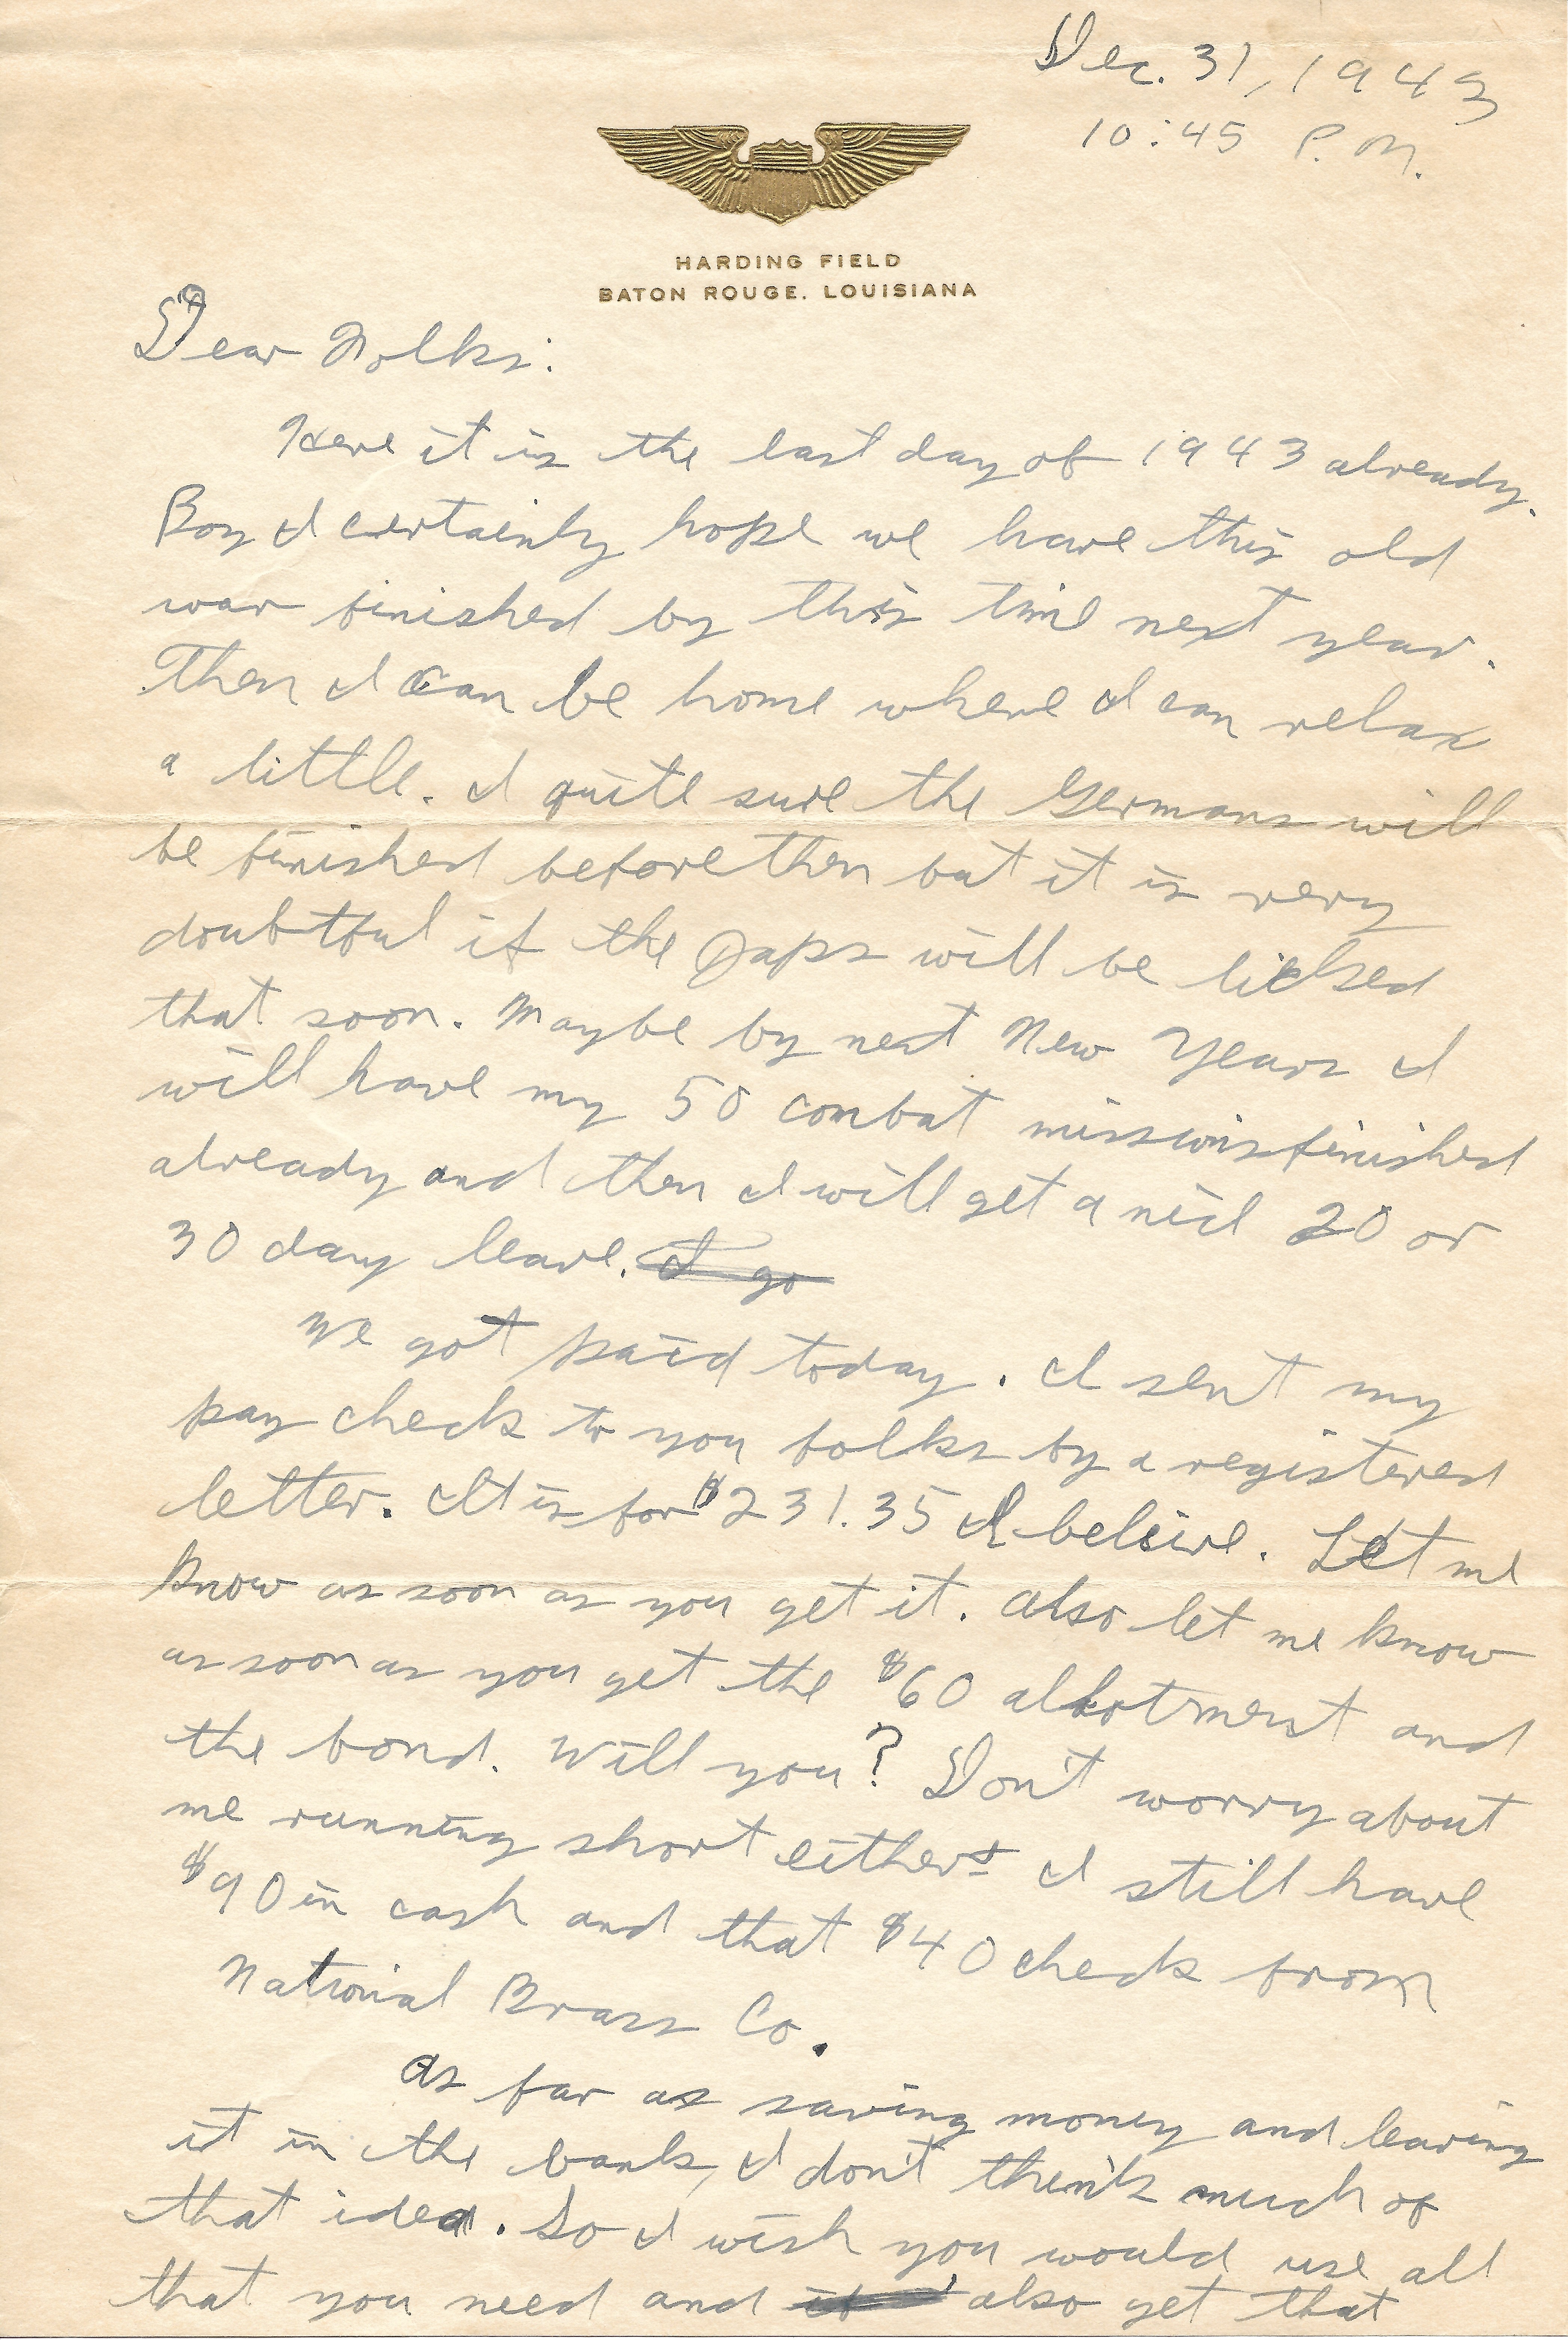 Dec. 31, 1943
10:45 P.M.
HARDING FIELD
BATON ROUGE, LOUISIANA
Dear Folks:
Here it is the last day of 1943 already.
Boy I certainly hope we have this old
war finished by this time next year.
Then I can be home where I can relax
a little. I quite sure the Germans will
be finished before then but it is very
doubtful if the Japs will be licked
that soon. Maybe by next New Years I
will have my 50 combat missions finished
already and then I will get a nice 20 or
30 day leave. I go
We got paid today. I sent my
pay check to you folks by a registered
letter. It is for $231.35 I beleive. Let me
know as soon as you get it. Also let me know
as soon as you get the $60 allotment and
the bond. Will you? Don't worry about
me running short either I still have
$90 in cash and that $40 check from
National Brass Co.
As far as saving money and leaving
it in the bank, I don't think much of
that idea. So I wish you would use all
that you need and also get that